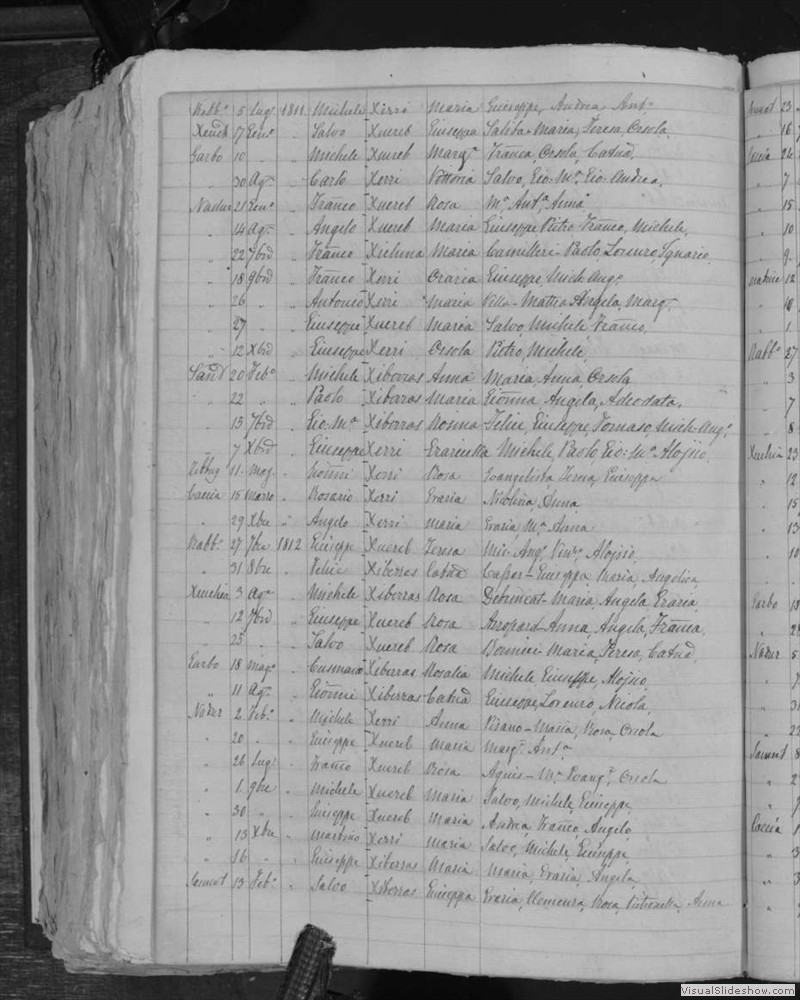 Rabb.º 5 Lugº 1811 Michele Xerri Maria Giuseppe, Andrea Antº
Xeuch 17 Genº " Salvo Xuereb Giuseppa Maria, Teresa, Orsola
Garbo 10 " " Michele Xuereb Margª Franca, Orsola, Catnā
" 30 Agº " Carlo Xerri Vittoria Salvo, Gio: Mª, Gio: Andrea
Nadur 21 Genº " Franco Xuereb Rosa Mª Antª Anna
" 14 Agº " Angelo Xuereb Maria Giuseppe Pietro Franco, Michele
" 22 7brē " Franco Xicluna Maria Camilleri - Paolo, Lorenzo, Ignazio
" 18 9brē " Franco Xerri Grazia Giuseppe, Mich: Angº
" 26 " " Antonio Xerri Maria Vella - Mattia Angela, Margª
" 27 " " Giuseppe Xuereb Maria Salvo, Michele Franco
" 12 Xbrē " Giuseppe Xerri Orsola Pietro, Michele
Sanā 20 Febº " Michele Xiberras Anna Maria, Anna, Orsola
" 22 " " Paolo Xiberras Maria Gionna Angela, Adeodata
" 15 7brē " Gio: Mª Xiberras Rosina Felice, Giuseppe, Tomaso, Mich: Angº
" 7 Xbrē " Giuseppe Xerri Michele, Paolo, Gio: Mª Alojsio
Zebbug 11 Magº " Xerri Rosa Evangelista, Giuseppe
Caccia 15 Marzo " Rosario Xerri Grazia Nicolina, Anna
" 29 Xbre " Angelo Xerri Maria Grazia, Mª Anna
Rabb.º 27 7bre 1812 Giuseppe Xuereb Teresa Mic: Angº Alojsio
" 31 8bre " Felice Xiberras Catnā Giuseppa Maria, Angelica
Xeuchia 3 Agº " Michele Xiberras Rosa Maria, Angela, Grazia
" 12 7brē " Giuseppe Xuereb Rosa Anna, Angela, Franca
" 25 " " Salvo Xuereb Rosa Bonnici - Maria, Teresa, Catnā
Garbo 18 Magº " Xiberras Rosalia Michele Giuseppe, Alojsio
" 11 Agº " Gionni Xiberras Catnā Giuseppe, Lorenzo, Nicola
Nadur 2 Febº " Michele Xerri Anna Pisano - Maria, Rosa, Orsola
" 20 " " Giuseppe Xuereb Maria Margª Antª
" 26 Lugº " Franco Xuereb Rosa Agius - Mª Evangª Orsola
" 1 9bre " Michele Xuereb Maria Salvo, Michele, Giuseppe
" 30 " " Giuseppe Xuereb Maria Andrea, Franco, Angelo
" 13 Xbre " Martino Xerri Maria Salvo, Michele, Giuseppe
" 16 " " Giuseppe Xiberras Maria Maria, Grazia, Angela
Sannat 13 Febº " Salvo Xiberras Giuseppa Grazia, Clemenza, Rosa, Anna
Sannat 23
" 16
Caccia 24
" 7
" 15
" 10
" 9
12
" 10
" 1
Rabbº 27
" 3
" 7
" 8
Xeuchia 23
" 12
" 15
" 13
" 10
Garbo 13
Nadur 5
" 7
" 31
" 22
Sannat 8
" 2
Caccia 1
" 3
" 3
VisualSlideshow.com